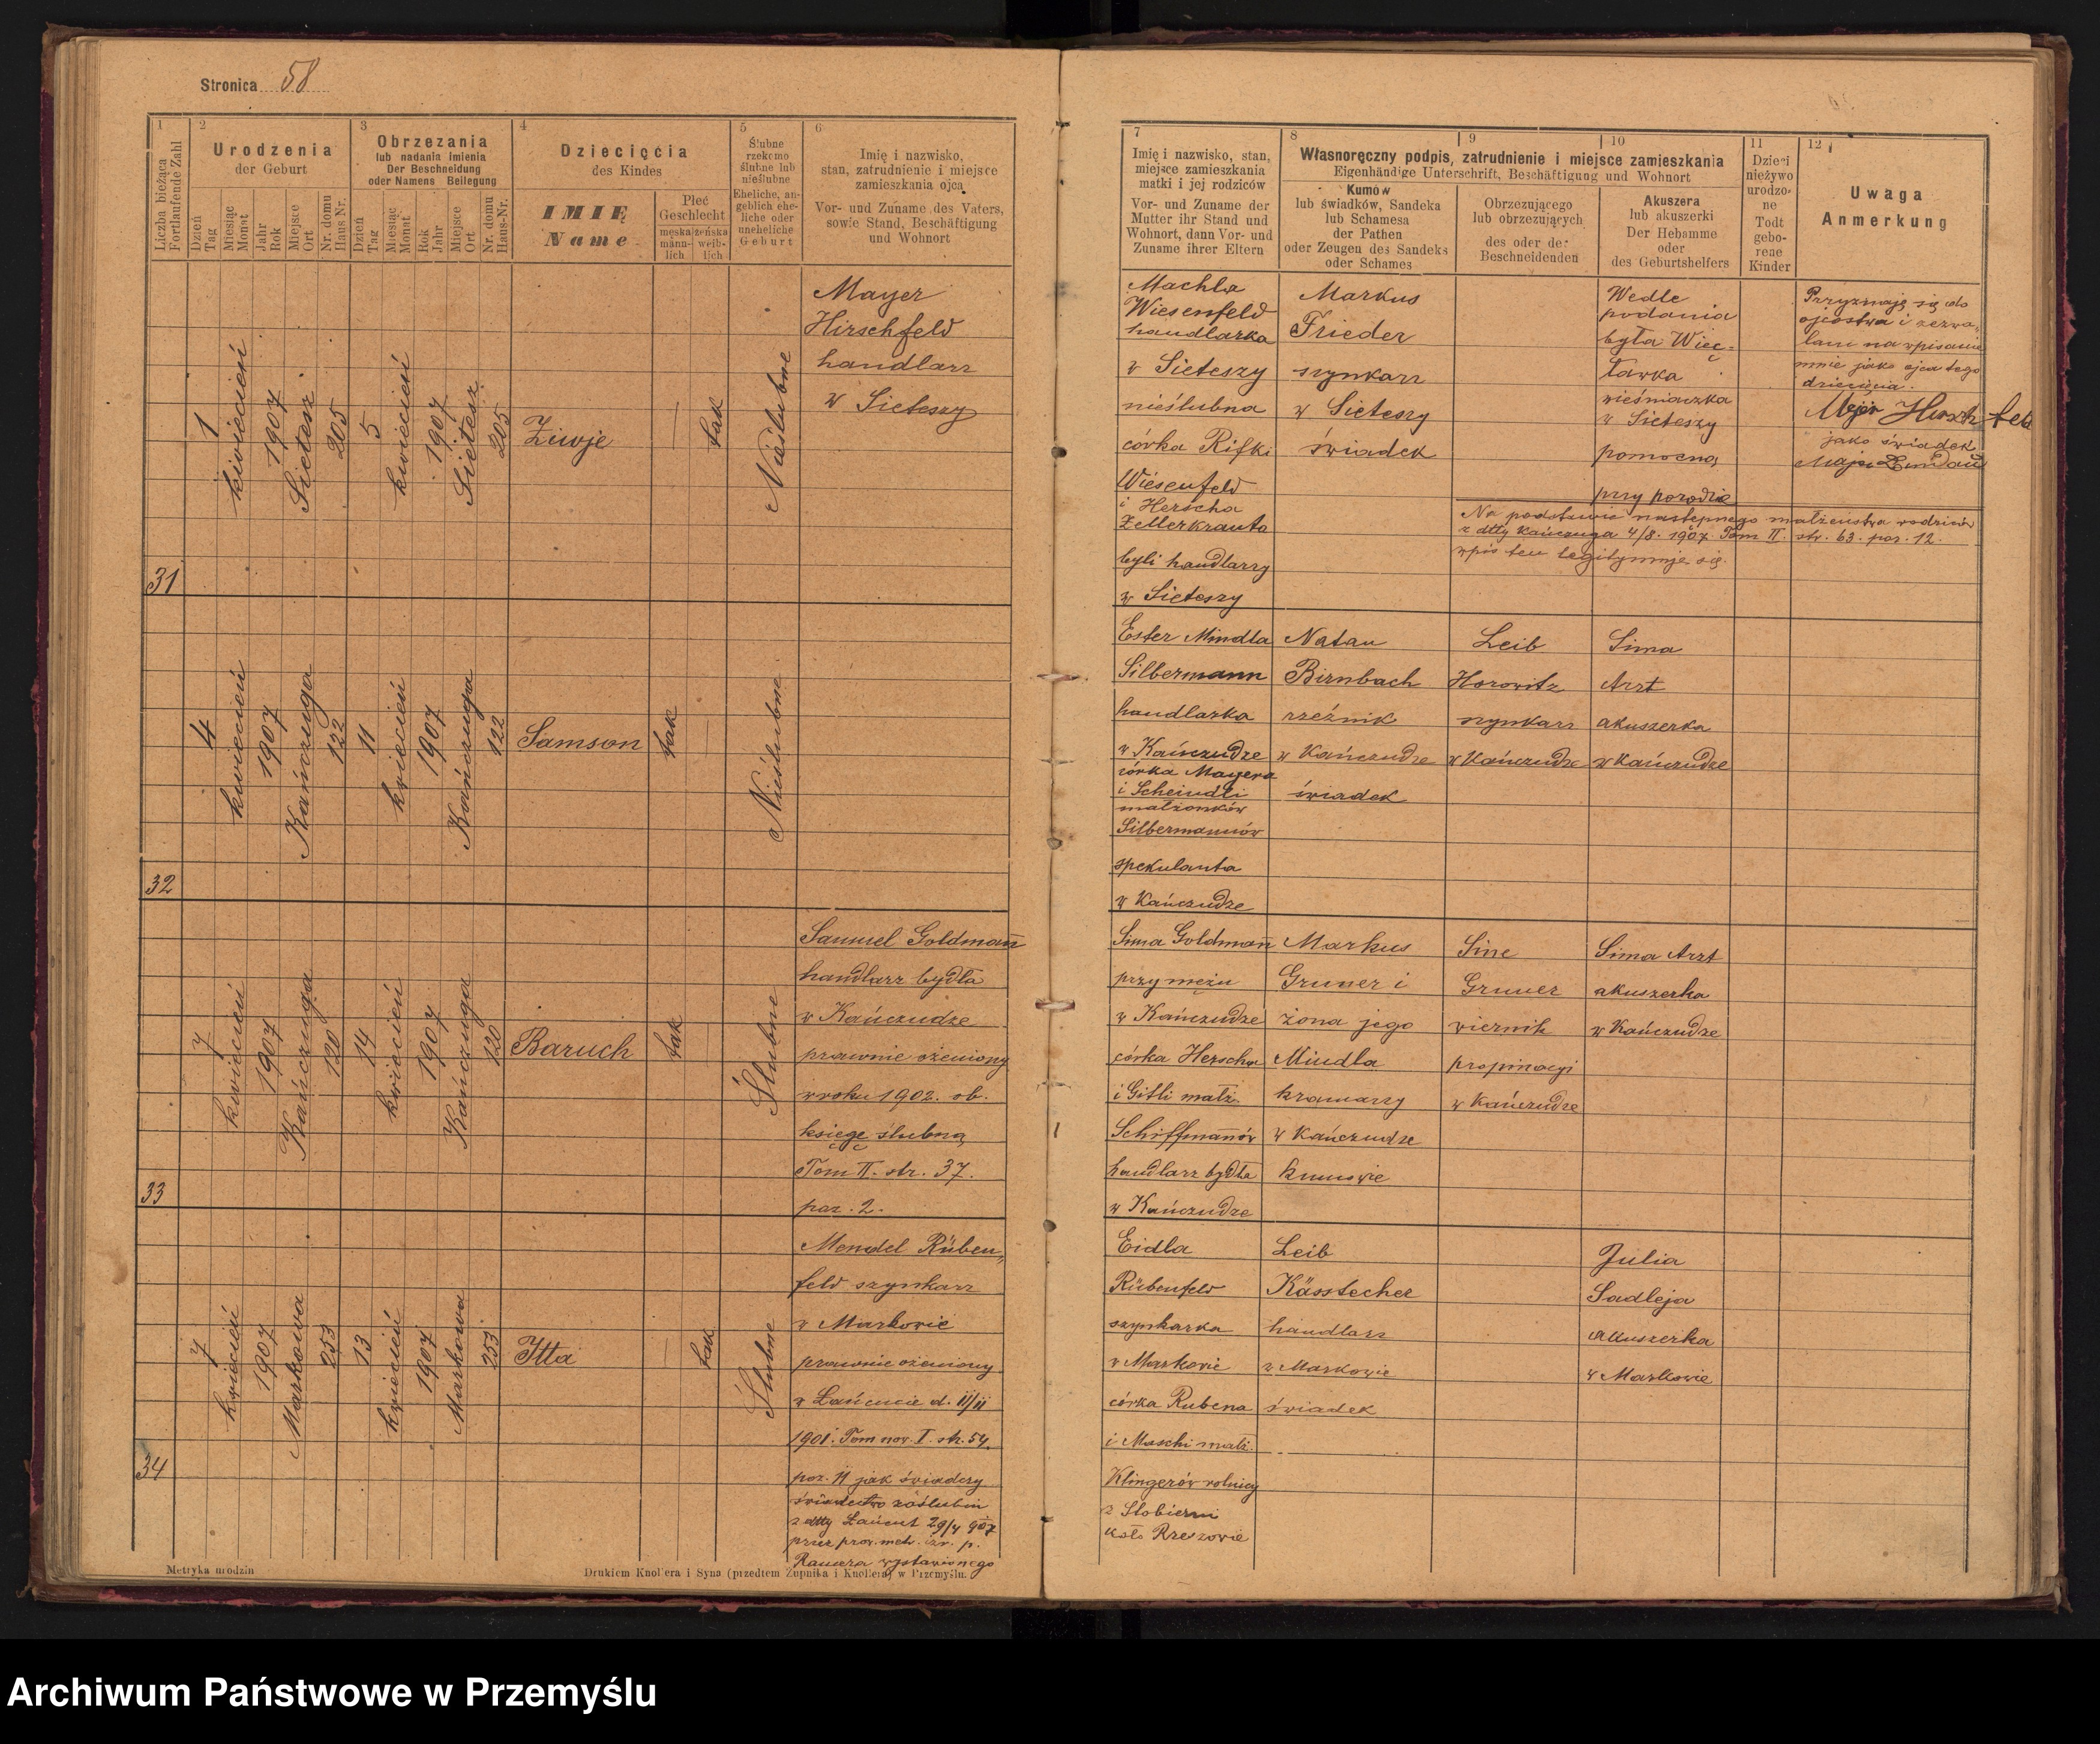 Stronica 58
1
Liczba bieżąca
Fortlaufende Zahl
2
Urodzenia
der Geburt
Dzień
Tag
Miesiąc
Monat
Jahr
Rok
Miejsce
Ort
Nr. domu
Haus Nr.
3
Obrzezania
lub nadania imienia
Der Beschneidung
oder Namens Beilegung
Dzień
Tag
Miesiąc
Monat
Rok
Jahr
Miejsce
Ort
Nr. domu
Haus-Nr.
4
Dziecięcia
des Kindes
IMIĘ
Name
Płeć
Geschlecht
męska
männ-
lich
żeńska
weib-
lich
5
Ślubne
rzekomo
ślubne lub
nieślubne
Eheliche, an-
geblich ehe-
liche oder
uneheliche
Geburt
6
Imię i nazwisko,
stan, zatrudnienie i miejsce
zamieszkania ojca
Vor- und Zuname des Vaters,
sowie Stand, Beschäftigung
und Wohnort
31
1
kwiecień
1907
Sietesz
205
5
kwiecień
1907
Sietesz
205
Ziwje
—
tak
Nieślubne
Mayer
Hirschfeld
handlarz
w Sieteszy
32
4
kwiecień
1907
Kańczuga
122
11
kwiecień
1907
Kańczuga
122
Samson
tak
Nieślubne
33
7
kwiecień
1907
Kańczuga
120
14
kwiecień
1907
Kańczuga
120
Baruch
tak
Ślubne
Samuel Goldmann
handlarz bydła
w Kańczudze
prawnie ożeniony
w roku 1902. ob.
księgę ślubną
Tom II. str. 37.
poz. 2.
34
7
kwiecień
1907
Markowa
253
13
kwiecień
1907
Markowa
253
Itta
—
tak
Ślubne
Mendel Rüben„
feld szynkarz
w Markowie
prawnie ożeniony
w Łańcucie d. 11/11
1901. Tom nov. I. str. 54.
poz. 11 jak świadczy
świadectwo zaślubin
z dtty Łańcut 29/4 907
przez prow. metr. izr. p.
wystawionego
Metryka urodzin
Drukiem Knollera i Syna (przedtem Żupnika i Knollera) w Przemyślu.
7
Imię i nazwisko, stan,
miejsce zamieszkania
matki i jej rodziców
Vor- und Zuname der
Mutter ihr Stand und
Wohnort, dann Vor- und
Zuname ihrer Eltern
8
9
10
Własnoręczny podpis, zatrudnienie i miejsce zamieszkania
Eigenhändige Unterschrift, Beschäftigung und Wohnort
Kumów
lub świadków, Sandeka
lub Schamesa
der Pathen
oder Zeugen des Sandeks
oder Schames
Obrzezującego
lub obrzezujących
des oder der
Beschneidenden
Akuszera
lub akuszerki
Der Hebamme
oder
des Geburtshelfers
11
Dzieci
nieżywo
urodzo-
ne
Todt
gebo-
rene
Kinder
12
Uwaga
Anmerkung
Machla
Wiesenfeld
handlarka
w Sieteszy
nieślubna
córka Rifki
Wiesenfeld
i Herscha
Zellerkrauta
byli handlarzy
w Sieteszy
Markus
Frieder
szynkarz
w Sieteszy
świadek
Wedle
podania
była Więc-
ławka
wieśniaczka
w Sieteszy
pomocną
przy porodzie
Przyznaję się do
ojcostwa i zezwa„
lam na wpisanie
mnie jako ojca tego
dziecięcia.
jako świadek
Na podstawie następnego małżeństwa rodziców
z dtty Kańczuga 4/8. 1907. Tom II. str. 63. poz. 12.
wpis ten legitymuje się.
Ester Mindla
Silbermann
handlarka
w Kańczudze
córka Mayera
i Scheindli
małżonków
Silbermannów
spekulanta
w Kańczudze
Natan
Birnbach
rzeźnik
w Kańczudze
świadek
Leib
Horowitz
szynkarz
w Kańczudze
Sima
Arzt
akuszerka
w Kańczudze
Sima Goldmann
przy mężu
w Kańczudze
córka Herscha
i Gitli małż.
Schiffmannów
handlarz bydła
w Kańczudze
Markus
Gruner i
żona jego
Mindla
kramarzy
w Kańczudze
kumowie
Sine
Gruner
wiernik
propinacyi
w Kańczudze
Sima Arzt
akuszerka
w Kańczudze
Eidla
Rübenfeld
szynkarka
w Markowie
córka Rubena
i Maschi małż.
Klingerów rolnicy
z Słobierni
koło Rzeszowie
Leib
Kässtecher
handlarz
w Markowie
świadek
Julia
Sadleja
akuszerka
w Markowie
Archiwum Państwowe w Przemyślu